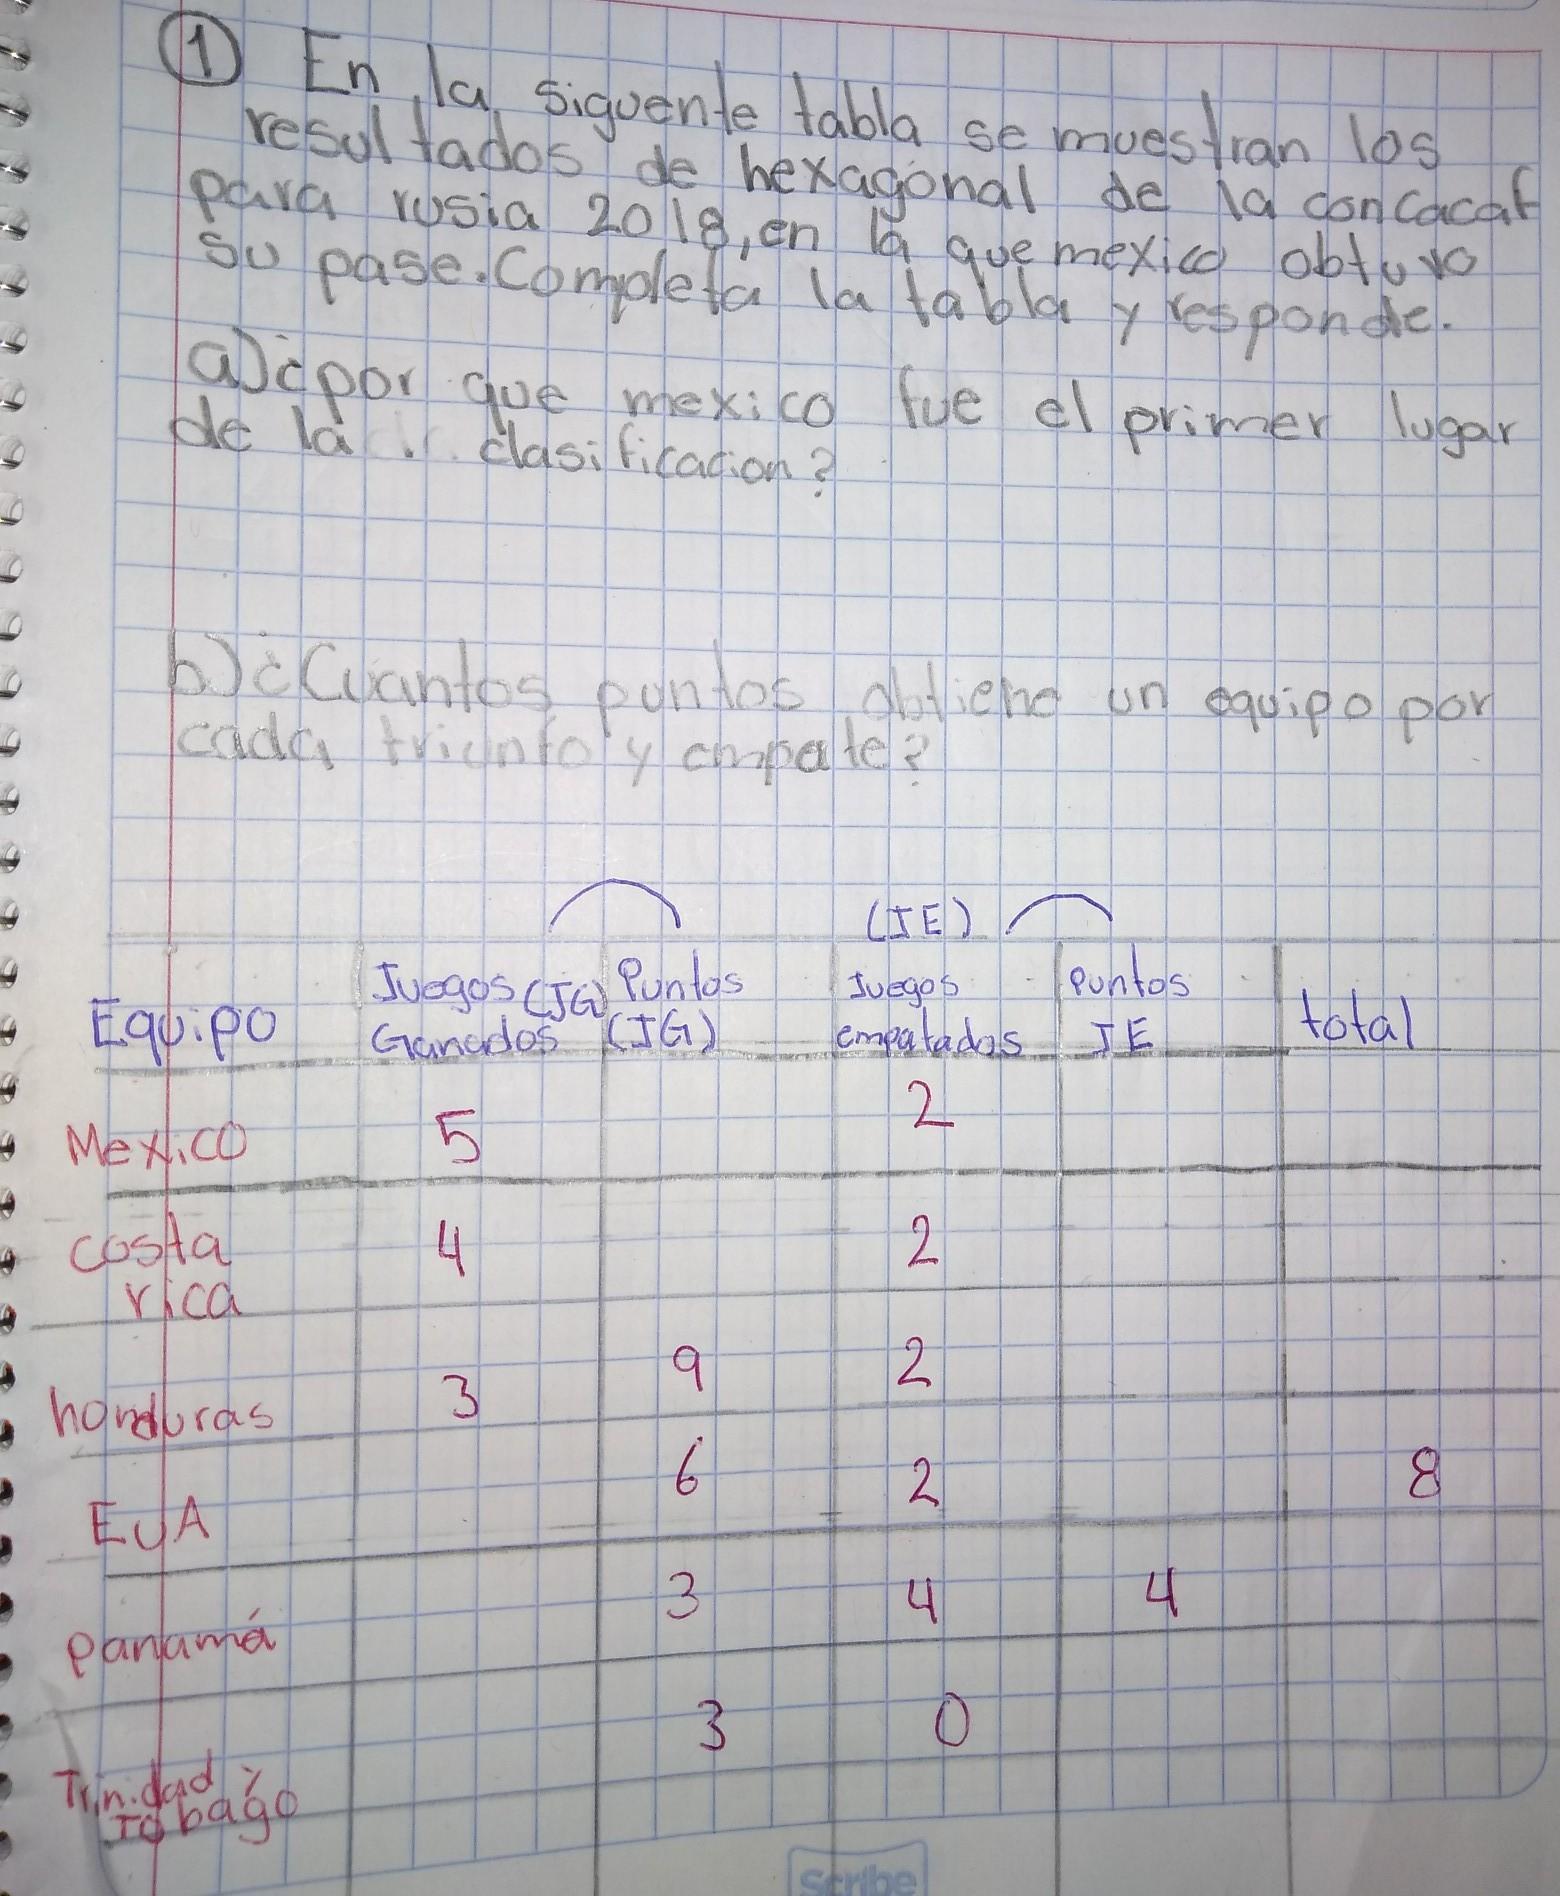 1 En la siguente tabla se muestran los
resultados de hexagónal de la concacaf
para rusia 2018, en la que mexico obtuvo
su pase. Completa la tabla y responde.
a) ¿por que mexico fue el primer lugar
de la clasificacion?
b) ¿Cuantos puntos obtiene un equipo por
cada triunfo y empate?
Equipo Juegos (JG) Ganados Puntos (JG) (JE) Juegos empatados Puntos JE total
Mexico 5 2
costa rica 4 2
honduras 3 9 2
EUA 6 2 8
panamá 3 4 4
Trinidad y Tobago 3 0
Scribe